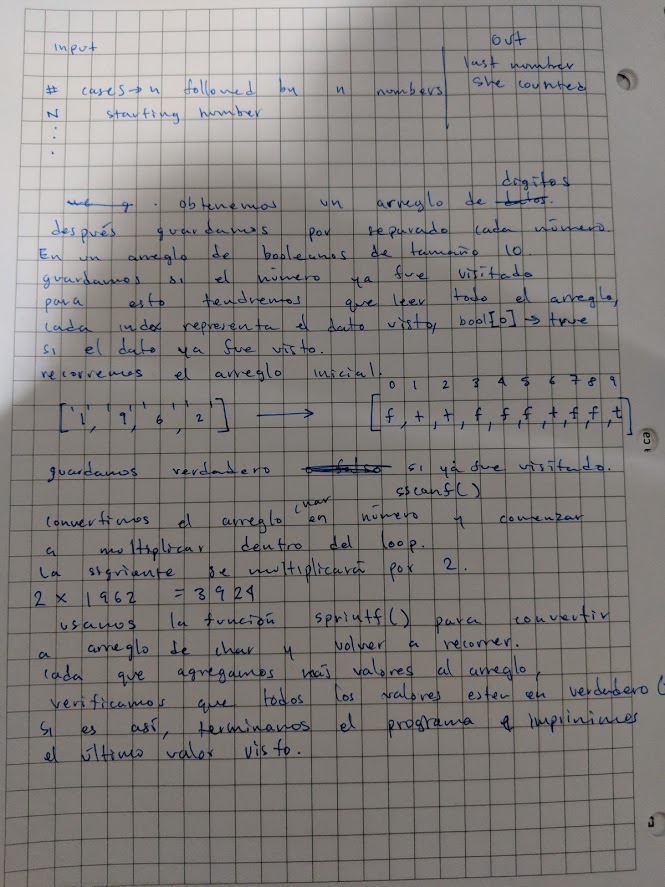 input
out
last number
she counted
# cases → n followed by n numbers
N starting number
:
.
digitos
. obtenemos un arreglo de datos.
después guardamos por separado cada número.
En un arreglo de booleanos de tamaño 10.
guardamos si el número ya fue visitado
para esto tendremos que leer todo el arreglo,
cada index representa el dato visto, bool[0] → true
si el dato ya fue visto.
recorremos el arreglo inicial.
0 1 2 3 4 5 6 7 8 9
['1', '9', '6', '2'] → [f, t, t, f, f, f, t, f, f, t]
guardamos verdadero o falso si ya fue visitado.
char sscanf()
convertimos el arreglo en número y comenzar
a multiplicar dentro del loop.
La siguiente se multiplicará por 2.
2 x 1962 = 3924
usamos la función sprintf() para convertir
a arreglo de char y volver a recorrer.
Cada que agregamos más valores al arreglo,
verificamos que todos los valores esten en verdadero (
Si es así, terminamos el programa e imprimimos
el último valor visto.